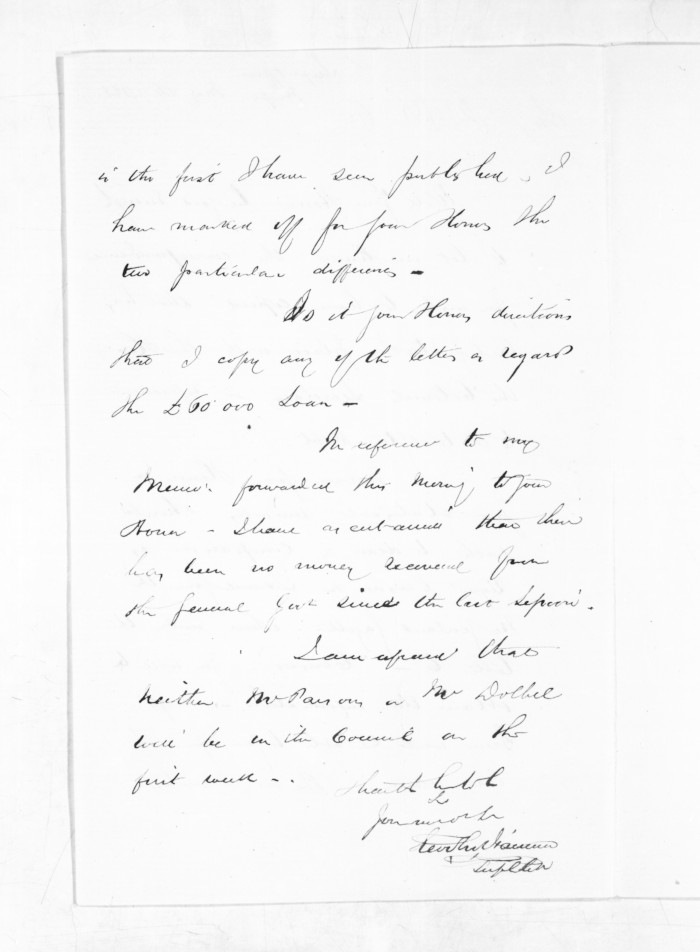 is the first I have seen published. I
have marked off for your Honor the
two particular differences -
Is it your Honors directions
that I copy any of the letters in regard
the £60,000 Loan -
In reference to my
Memo. forwarded this Morning to your
Honor - I have ascertained that there
has been no money received from
the General Govt since the last Session.
I am afraid that
neither Mr Parsons or Mr Dolbel
will be in the Council on the
first week -
I have
to be
Your